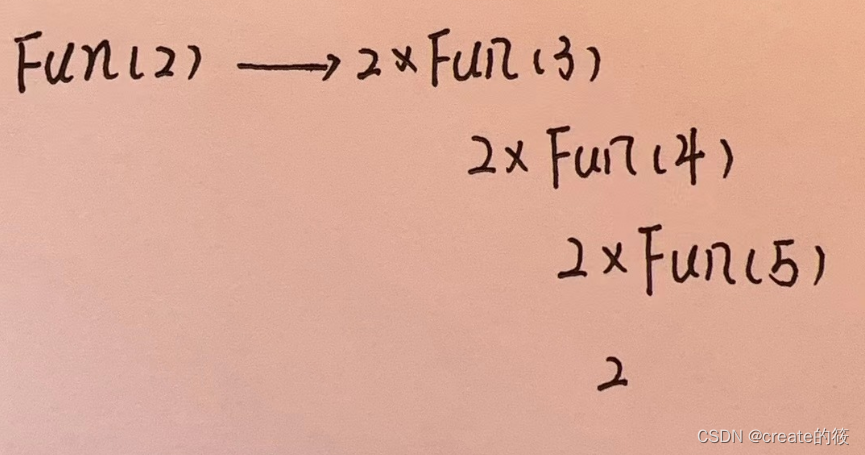 Fun(2) → 2×Fun(3)
2×Fun(4)
2×Fun(5)
2
CSDN @create的筱